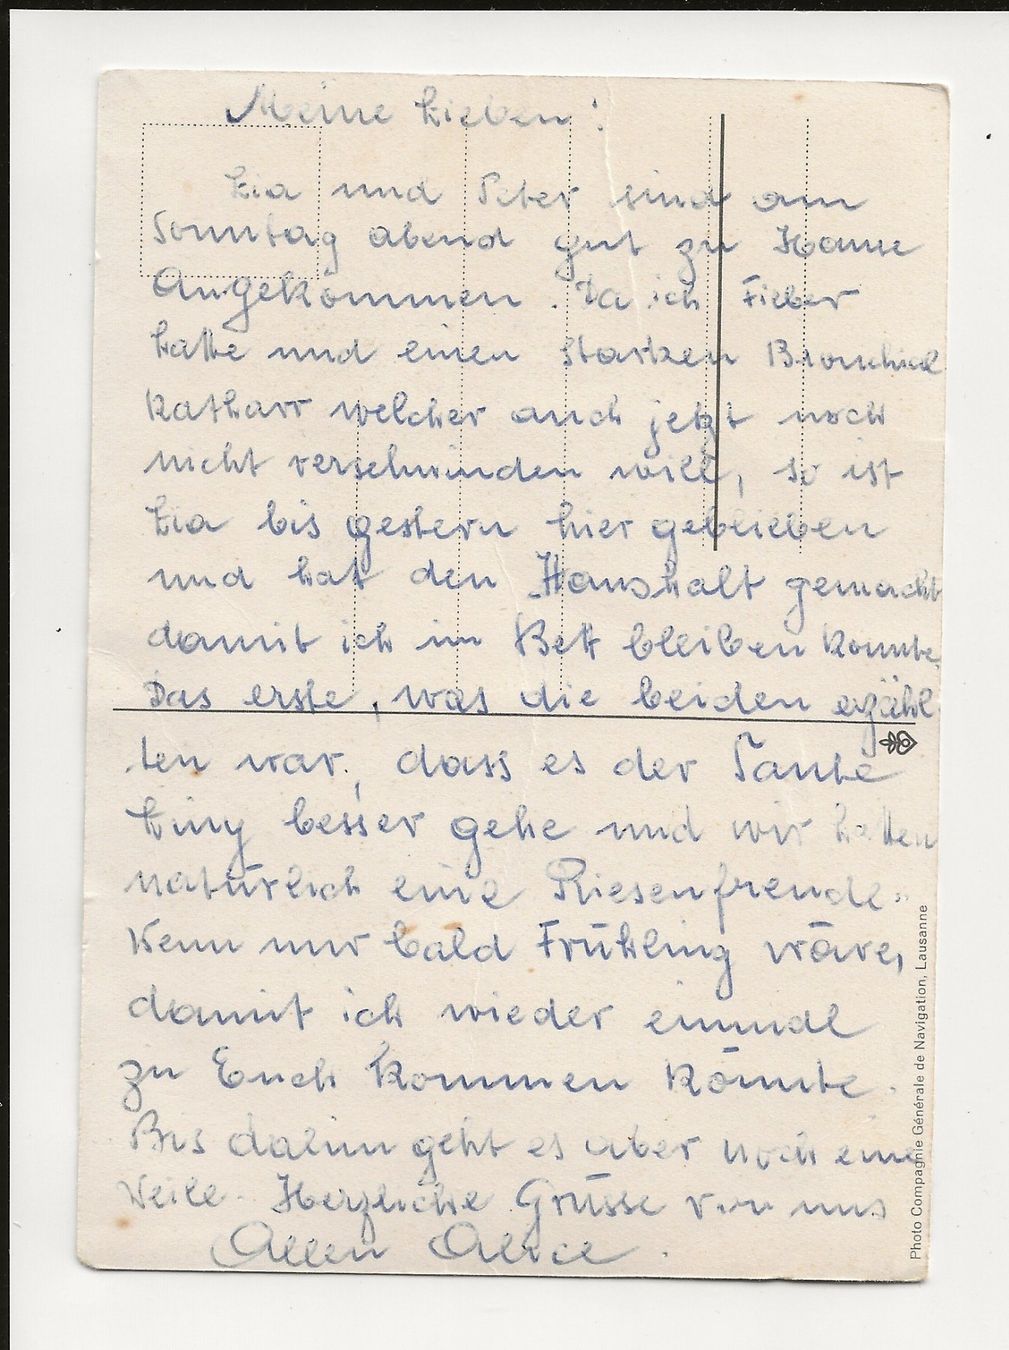 Meine Lieben!
Lia und Peter sind am
Sonntag abend gut zu Hause
Angekommen. Da ich Fieber
hatte und einen starken Bronchial
Katharr welcher auch jetzt noch
nicht verschwinden will, so ist
Lia bis gestern hier geblieben
und hat den Haushalt gemacht
damit ich im Bett bleiben konnte.
Das erste, was die beiden erzähl
ten war, dass es der Tante
Liny besser gehe und wir hatten
natürlich eine Riesenfreude.
Wenn nur bald Frühling wäre,
damit ich wieder einmal
zu Euch kommen könnte.
Bis dahin geht es aber noch eine
Weile. Herzliche Grüsse von uns
Allen Alice.
Photo Compagnie Générale de Navigation, Lausanne